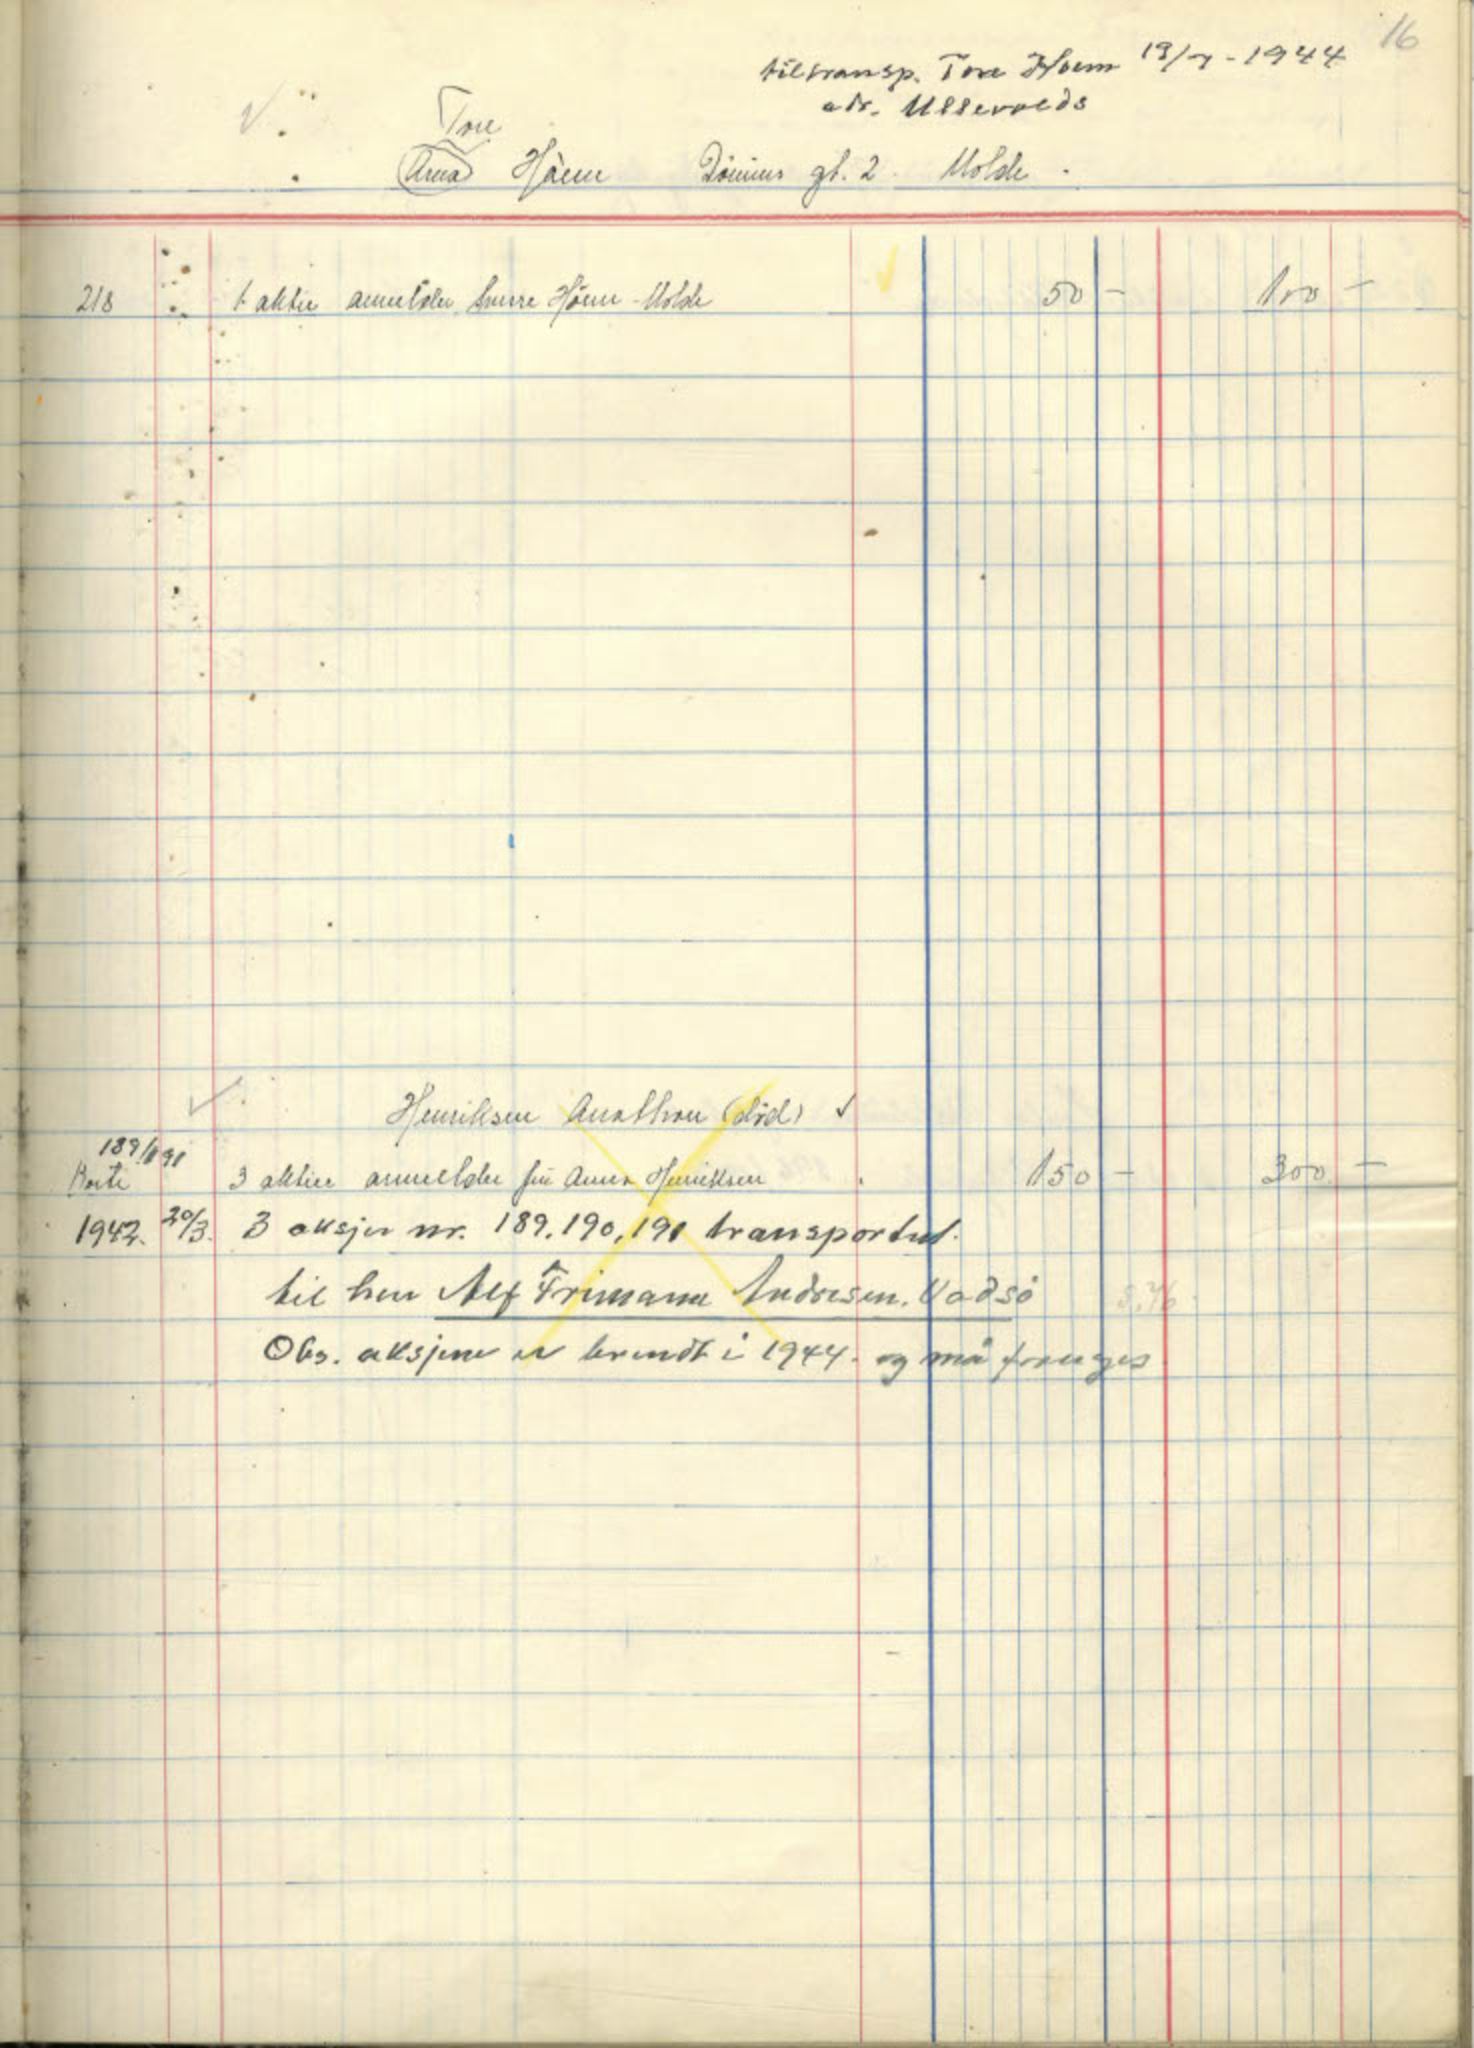 16
tiltransp. Tore Hoem 19/7-1944
adr. Ullevolds
Tore
Arna Hòem gt. 2 Molde.
218 1 aktie anmelder Sverre Hòem - Molde 50 - 100 -
Henriksen Anathon (död)
189/191
3 aktier anmelder fru Anna Henriksen 150 - 300 -
1942. 20/3. 3 aksjer nr. 189, 190, 191 transportert.
til herr Alf Frimann Andresen. Vadsö
Obs. aksjene er brendt i 1944. og må fornyes